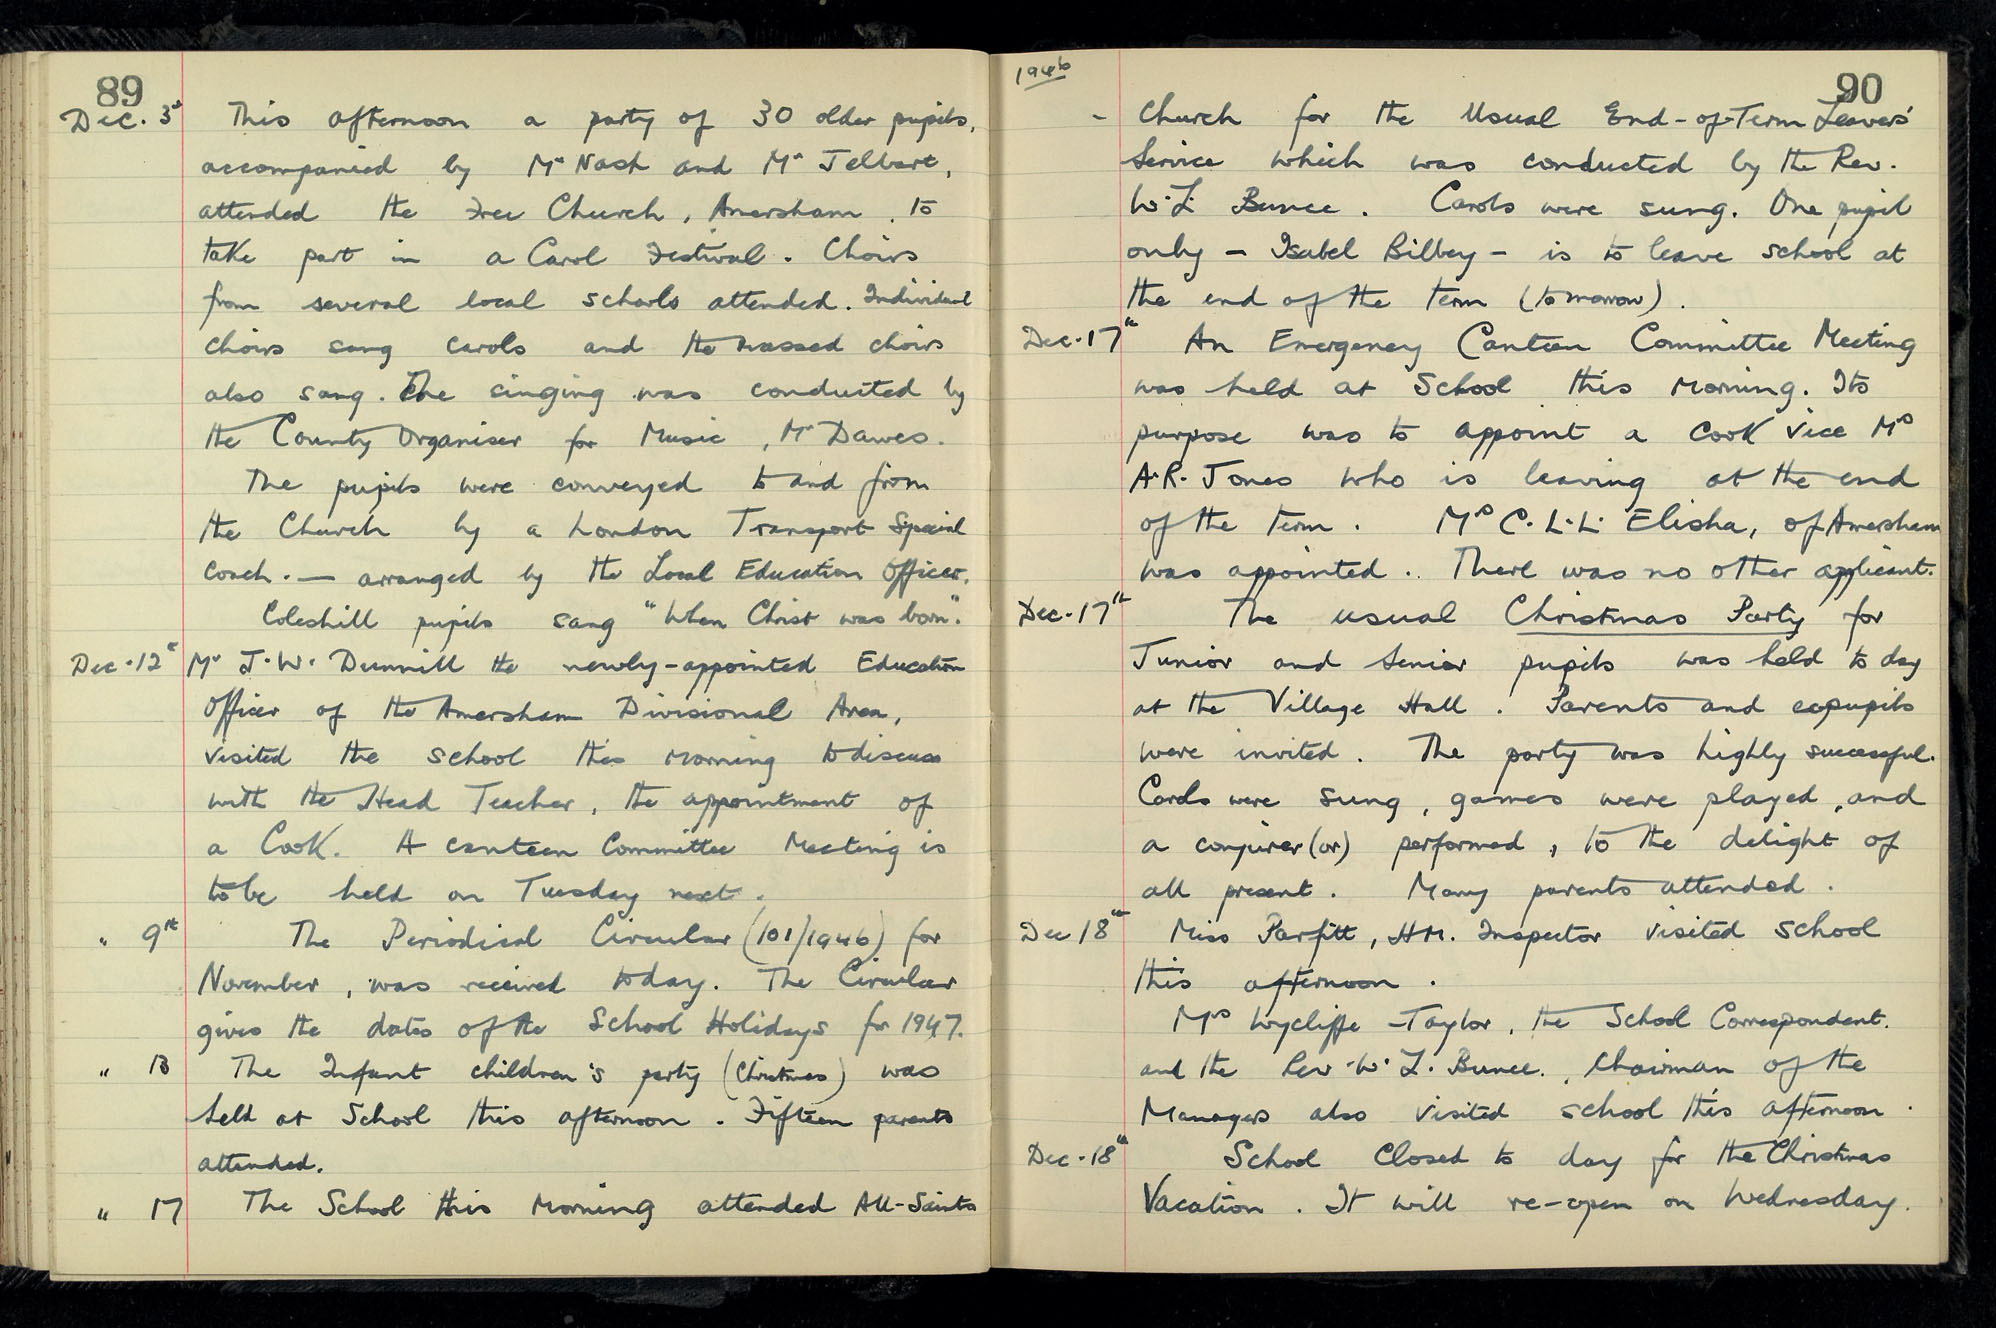 89
Dec. 3rd This afternoon a party of 30 older pupils,
accompanied by Mr Nash and Mr Jelbart,
attended the Free Church, Amersham, to
take part in a Carol Festival. Choirs
from several local schools attended. Individual
choirs sang carols and the massed choirs
also sang. The singing was conducted by
the County Organiser for Music, Mr Dawes.
The pupils were conveyed to and from
the Church by a London Transport Special
Coach. — arranged by the Local Education Officer.
Coleshill pupils sang "When Christ was born".
Dec. 12th Mr J. W. Dunnill the newly-appointed Education
Officer of the Amersham Divisional Area,
visited the school this morning to discuss
with the Head Teacher, the appointment of
a Cook. A canteen Committee Meeting is
to be held on Tuesday next.
" 9th The Periodical Circular (101/1946) for
November, was received today. The Circular
gives the dates of the School Holidays for 1947.
" 13 The Infant children's party (Christmas) was
held at School this afternoon. Fifteen parents
attended.
" 17 The School this morning attended All-Saints
1946
90
- Church for the Usual End-of-Term Leavers'
Service which was conducted by the Rev.
W. L. Bunce. Carols were sung. One pupil
only - Isabel Bilbey - is to leave school at
the end of the term (tomorrow).
Dec. 17th An Emergency Canteen Committee Meeting
was held at School this morning. Its
purpose was to appoint a cook vice Mrs
A. R. Jones who is leaving at the end
of the term. Mrs C. L. L. Elisha, of Amersham
was appointed.. There was no other applicant.
Dec. 17th The usual Christmas Party for
Junior and Senior pupils was held to day
at the Village Hall. Parents and expupils
were invited. The party was highly successful.
Carols were sung, games were played, and
a conjurer (or) performed, to the delight of
all present. Many parents attended.
Dec 18th Miss Parfitt, H.M. Inspector visited school
this afternoon.
Mrs Wycliffe-Taylor, the School Correspondent.
and the Rev. W. L. Bunce., Chairman of the
Managers also visited school this afternoon.
Dec. 18th School Closed to day for the Christmas
Vacation. It will re-open on Wednesday.